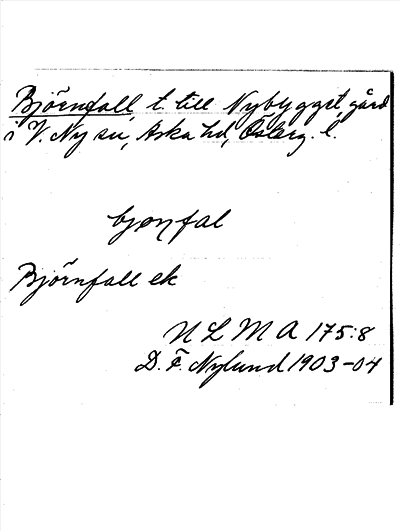 Björnfall t. till Nybygget, gård
i V. Ny sn, Aska hd, Österg. l.
bjo̧ŋfal
Björnfall ek
N L M A 175:8
D. F. Nylund 1903-04